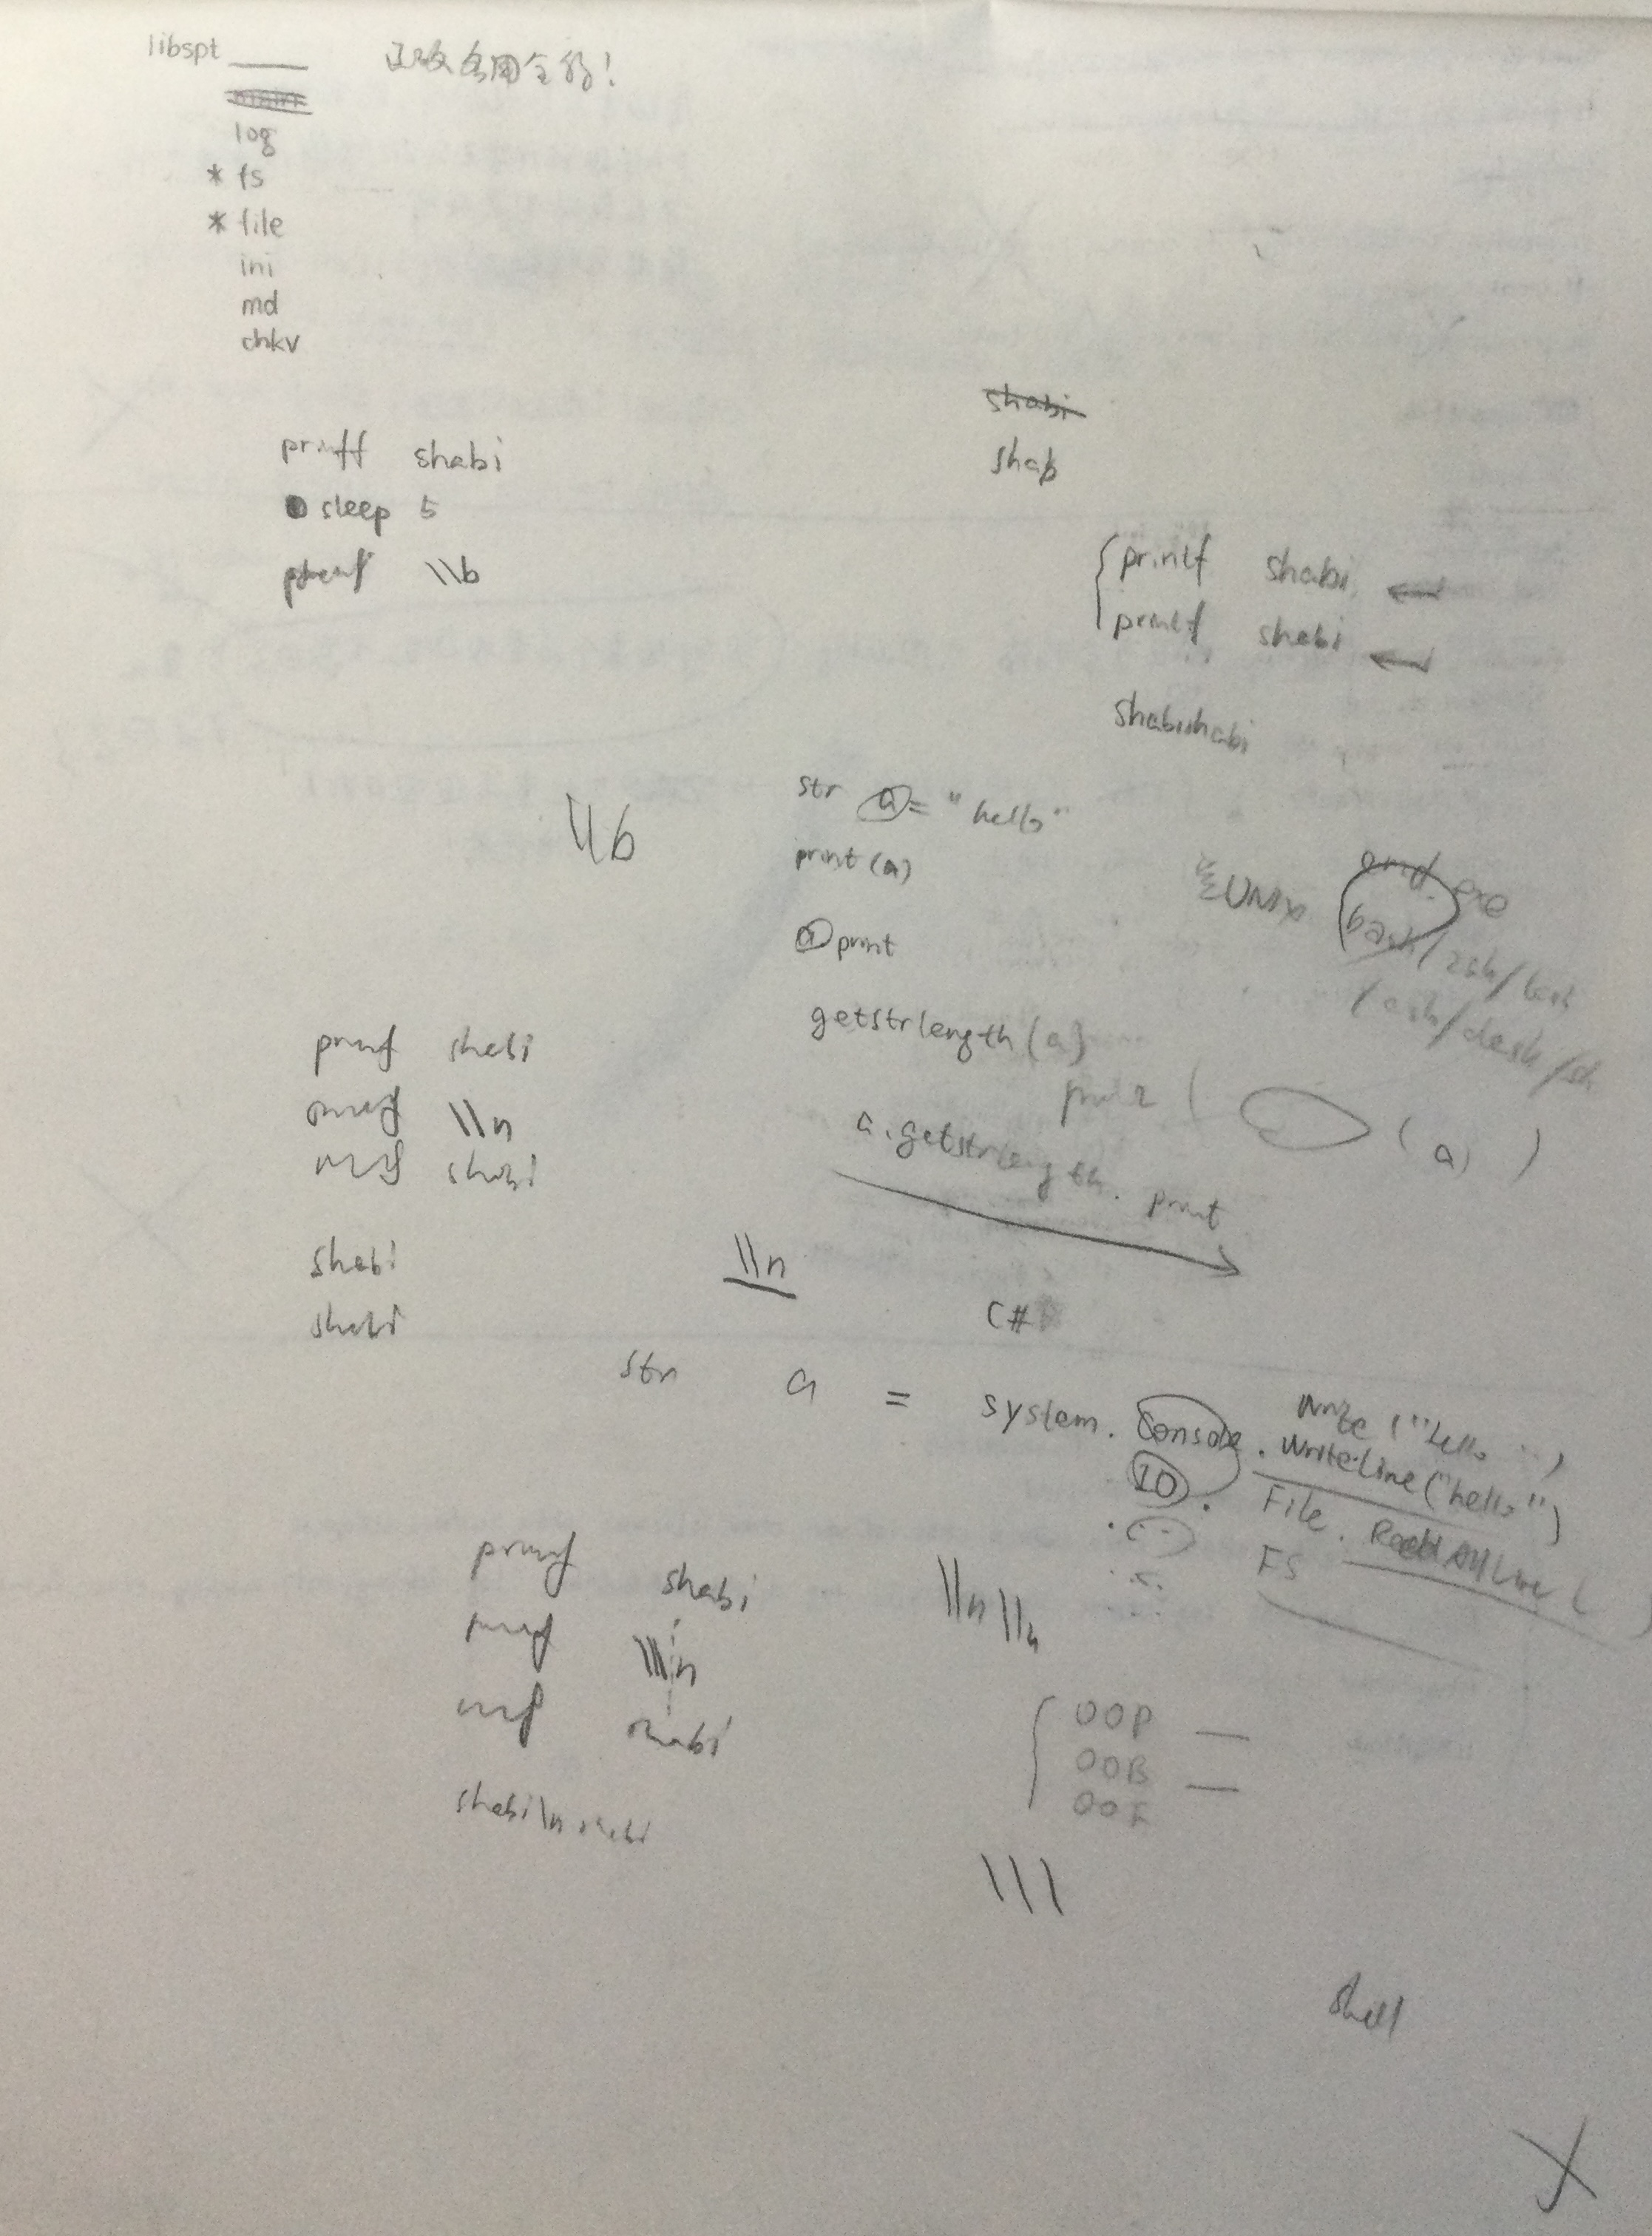 libspt
log
* fs
* file
ini
md
chkv
shabi
shab
printf shabi
sleep 5
printf \\b
printf shabi
printf shabi
shabishabi
\\b
str a = "hello"
print (a)
a print
UNIX
cmd.exe
bash / zsh /
/ ash / dash / sh
getstrlength (a)
( (a) )
a.getstrlength. print
printf shabi
\\n
shabi
shabi
shabi
\\n
C#
str a = system. Console. WriteLine ("hello")
Write ("hello")
IO. File. ReadAllLine (
FS
printf shabi
\\\n
shabi
shabi\n shabi
\\n \\n
OOP
OOB
OOF
\\\
shell